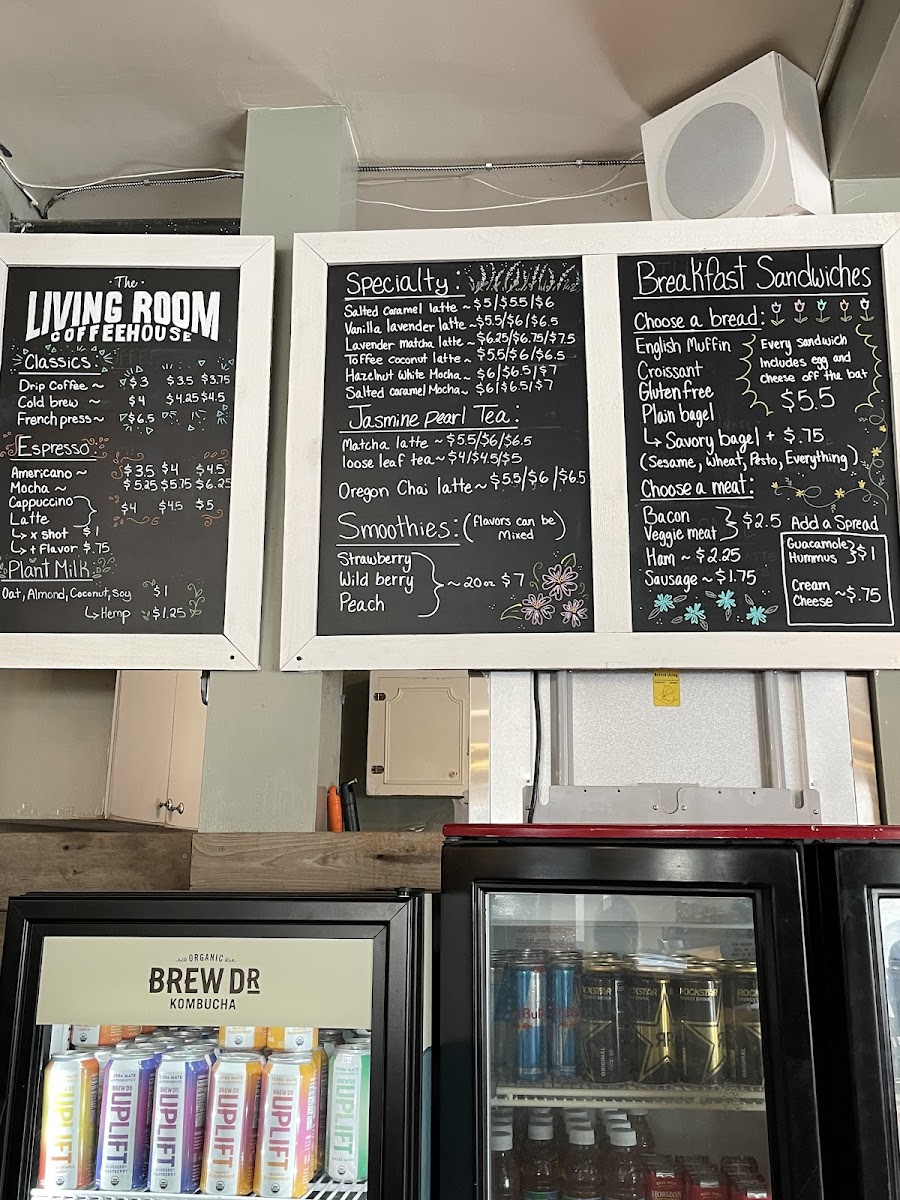 The
LIVING ROOM
COFFEEHOUSE
Classics:
Drip Coffee ~ $3 $3.5 $3.75
Cold brew ~ $4 $4.25 $4.5
French press ~ $6.5
Espresso:
Americano ~ $3.5 $4 $4.5
Mocha ~ $5.25 $5.75 $6.25
Cappuccino
Latte
$4 $4.5 $5
↳ x shot $1
↳ + Flavor $.75
Plant Milk
Oat, Almond, Coconut, Soy $1
↳ Hemp $1.25
Specialty:
Salted caramel latte ~ $5/$5.5/$6
Vanilla lavender latte ~ $5.5/$6/$6.5
Lavender matcha latte ~ $6.25/$6.75/$7.5
Toffee coconut latte ~ $5.5/$6/$6.5
Hazelnut White Mocha ~ $6/$6.5/$7
Salted caramel Mocha ~ $6/$6.5/$7
Jasmine Pearl Tea:
Matcha latte ~ $5.5/$6/$6.5
loose leaf tea ~ $4/$4.5/$5
Oregon Chai latte ~ $5.5/$6/$6.5
Smoothies: (flavors can be Mixed)
Strawberry
Wild berry
Peach
~ 20 oz $7
Breakfast Sandwiches
Choose a bread:
English Muffin
Croissant
Gluten free
Plain bagel
↳ Savory bagel + $.75
(Sesame, Wheat, Pesto, Everything)
Every sandwich
Includes egg and
cheese off the bat
$5.5
Choose a meat:
Bacon
Veggie meat
$2.5
Ham ~ $2.25
Sausage ~ $1.75
Add a Spread
Guacamole
Hummus
$1
Cream
Cheese ~ $.75
ORGANIC
BREW DR
KOMBUCHA
UPLIFT
UPLIFT
UPLIFT
UPLIFT
UPLIFT
UPLIFT
ROCKSTAR
ROCKSTAR
ORIGINAL
HORIZON